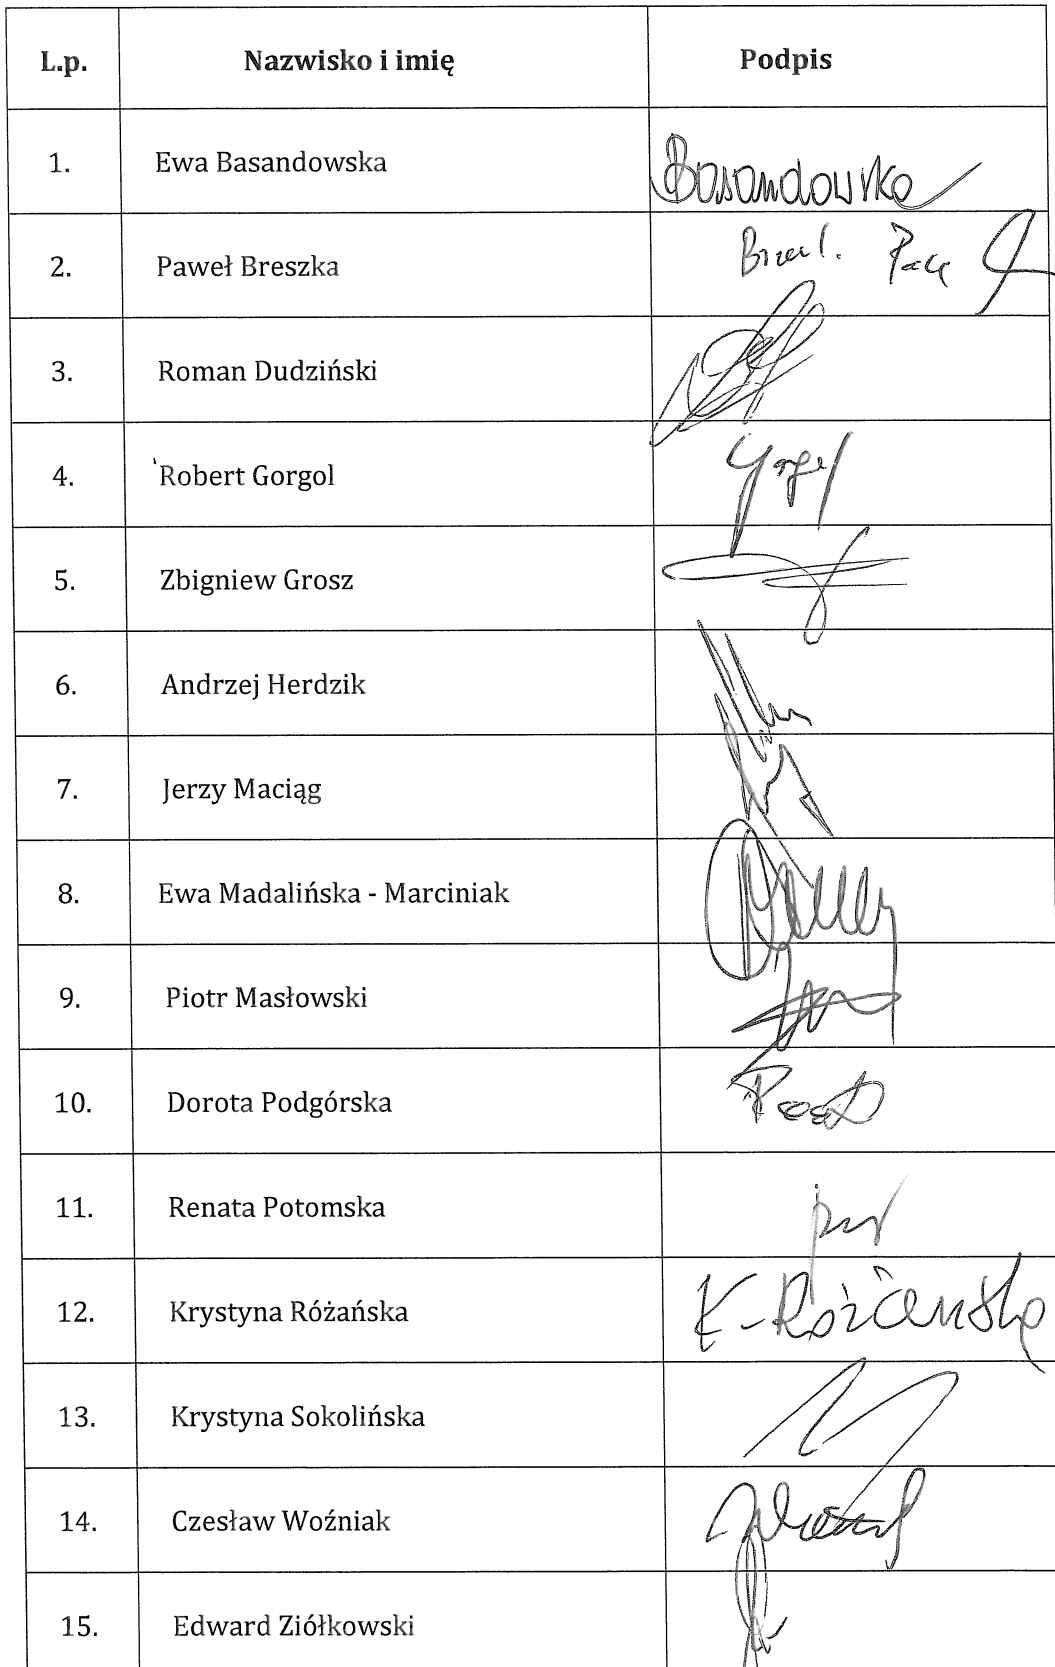 L.p. Nazwisko i imię Podpis
1. Ewa Basandowska Basandowska
2. Paweł Breszka
3. Roman Dudziński
4. Robert Gorgol Gorgol
5. Zbigniew Grosz
6. Andrzej Herdzik
7. Jerzy Maciąg
8. Ewa Madalińska - Marciniak
9. Piotr Masłowski
10. Dorota Podgórska
11. Renata Potomska
12. Krystyna Różańska K. Różańska
13. Krystyna Sokolińska
14. Czesław Woźniak
15. Edward Ziółkowski